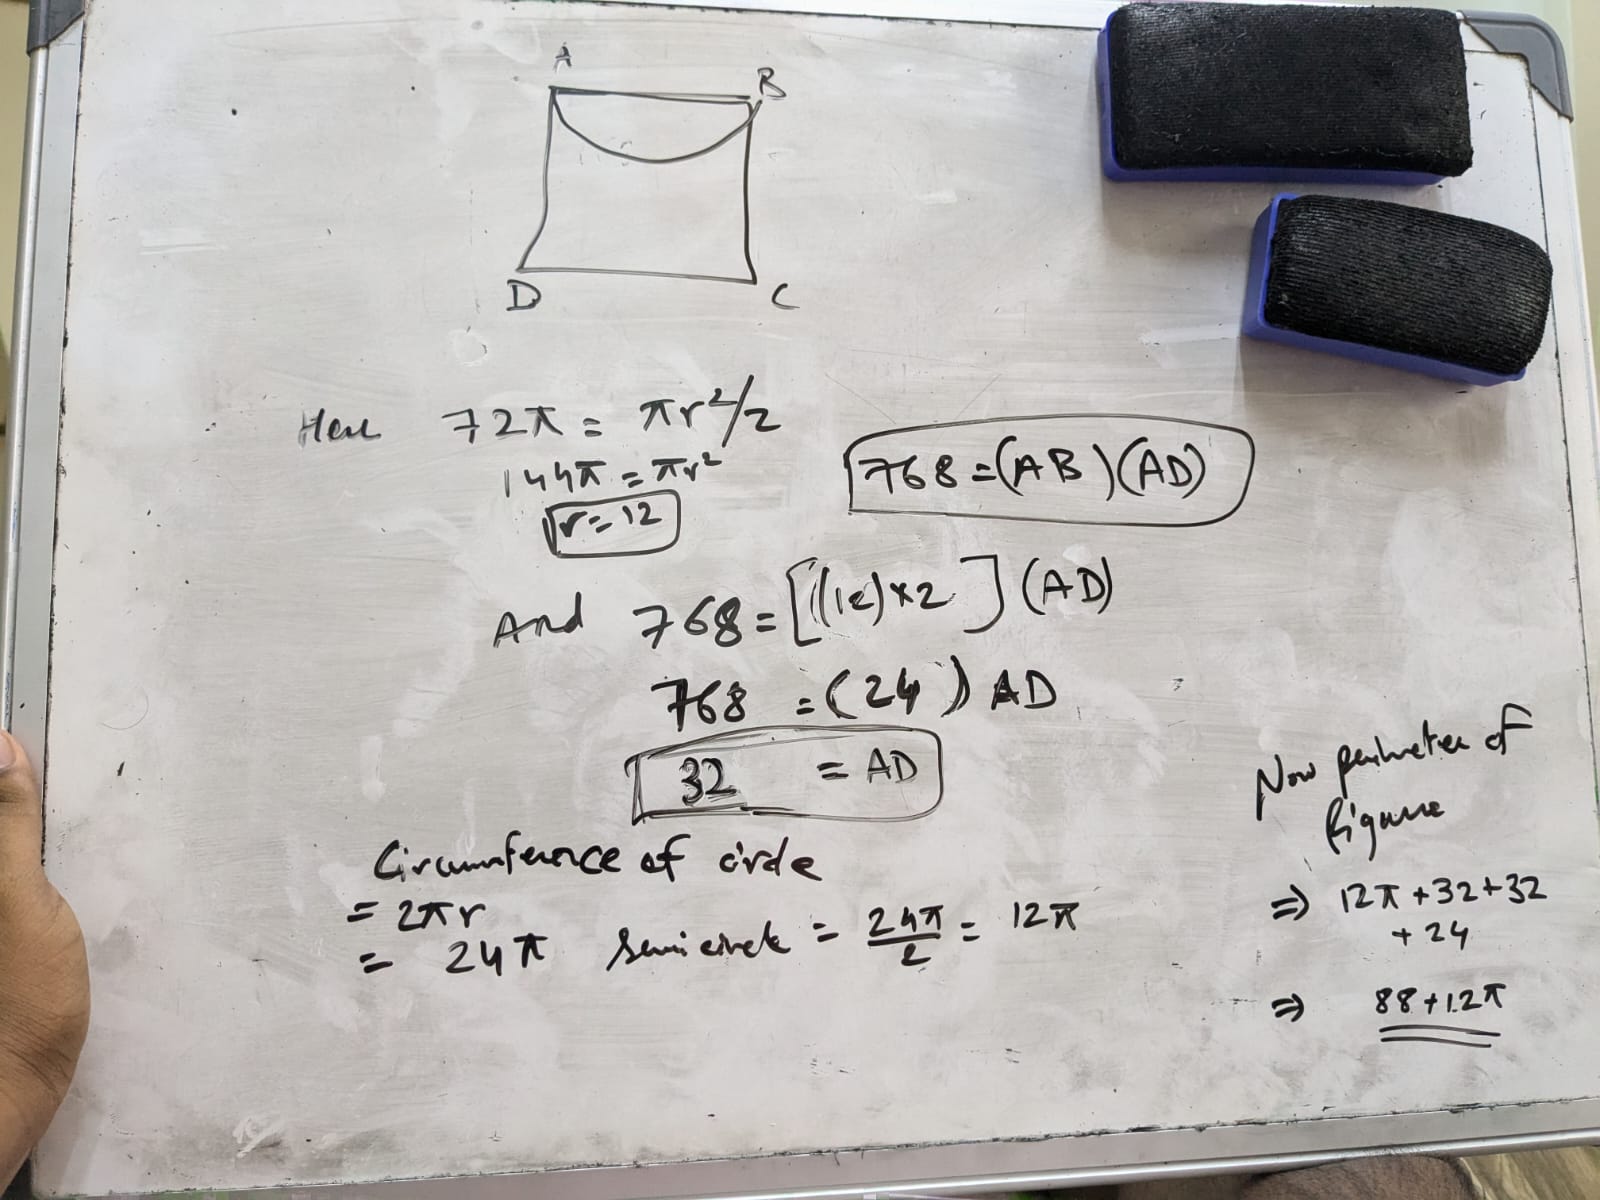 A
B
D
C
Here 72π = πr²/2
144π = πr²
r = 12
768 = (AB)(AD)
And 768 = [(12)×2](AD)
768 = (24) AD
32 = AD
Circumference of circle
= 2πr
= 24π semi circle = 24π/2 = 12π
Now perimeter of
figure
⇒ 12π + 32 + 32
+ 24
⇒ 88 + 12π